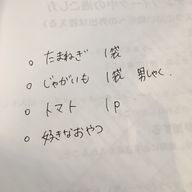 ○ たまねぎ 1袋
○ じゃがいも 1袋 男しゃく.
○ トマト 1p
○ 好きなおやつ